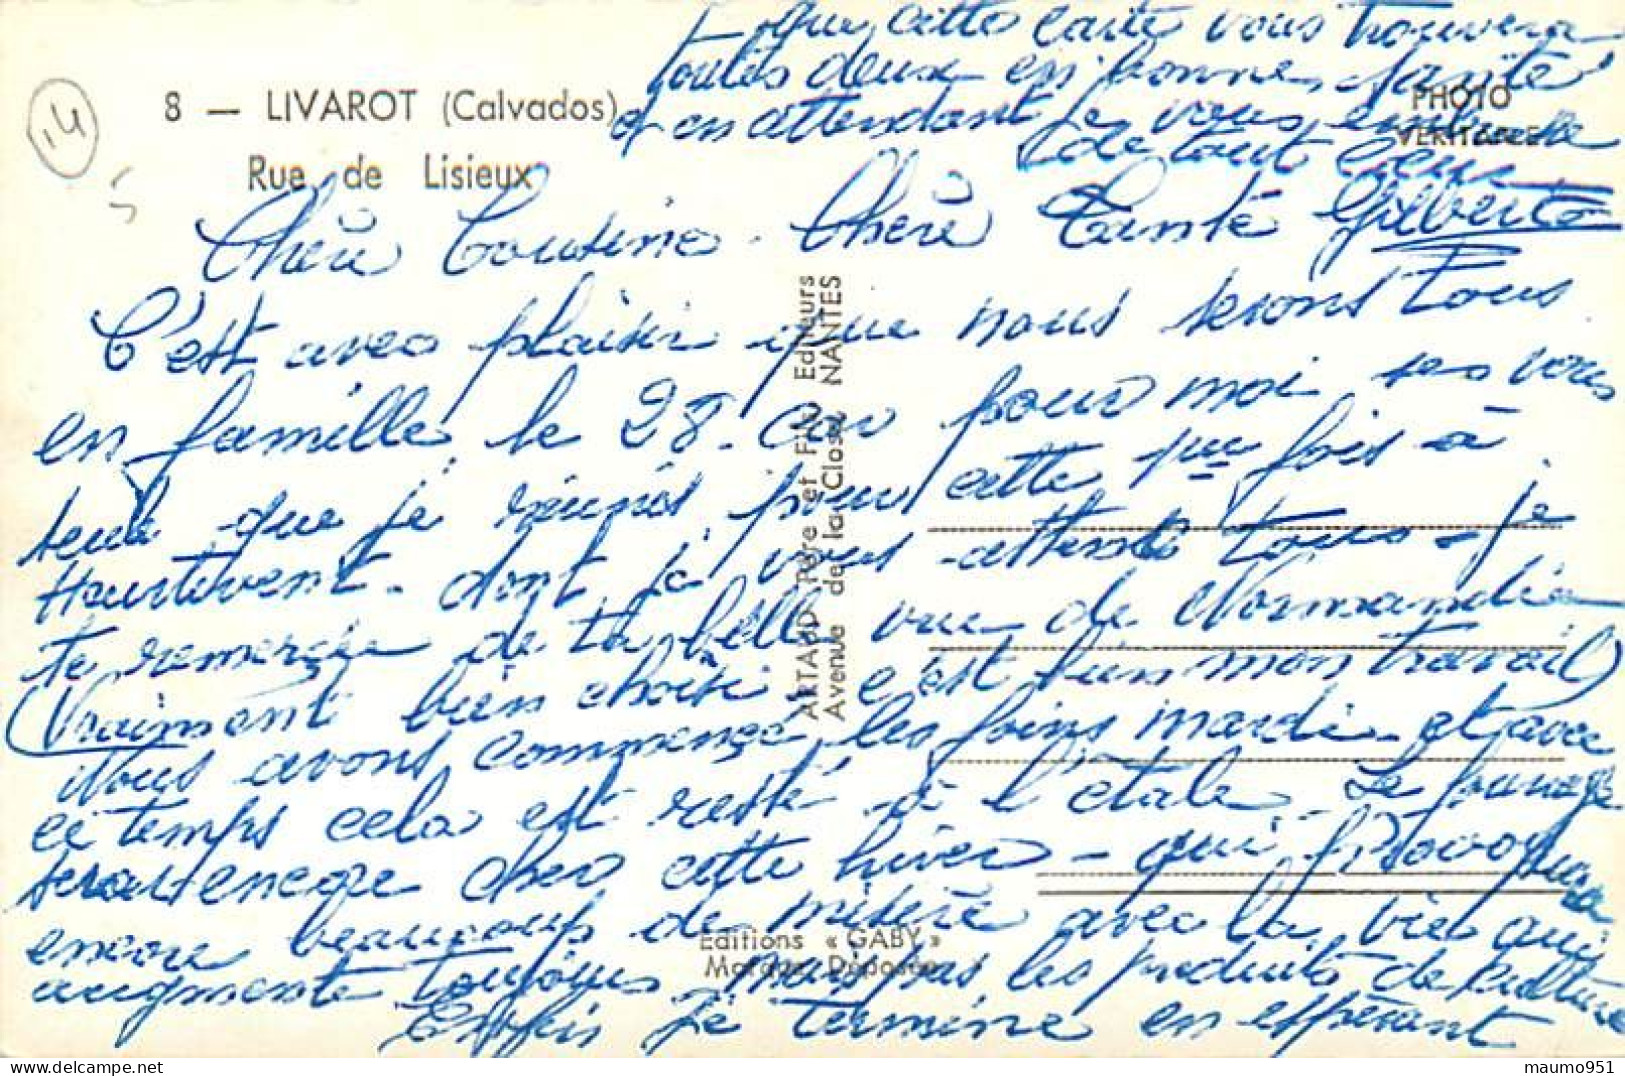 8 — LIVAROT (Calvados)
Rue de Lisieux
PHOTO
VERITABLE
Chère Cousine. Chère Tante
C'est avec plaisir que nous serons tous
en famille, le 28. car pour moi ses vous
seul que je réunis pour cette 1ere fois à
Hautivent. dont je vous attends tous - je
te remercie de ta belle vue de Normandie
(Vraiment bien choisi, c'est bien mon travail)
Nous avons commencé les foins mardi et avec
ce temps cela est resté à l'étale. Le fourage
serat encore cher cette hiver - qui provoquera
encore beaucoup de misère avec la vie qui
augmente toujours mais pas les produits de culture
Enfin je termine en espérant
que cette carte vous trouvera
toutes deux en bonne santé
et en attendant je vous embrasse
de tout cœur
Gilberte
ARTAUD Père et Fils Editeurs
Avenue de la Close NANTES
Editions « GABY »
Marque Déposée
14
5
maumo951